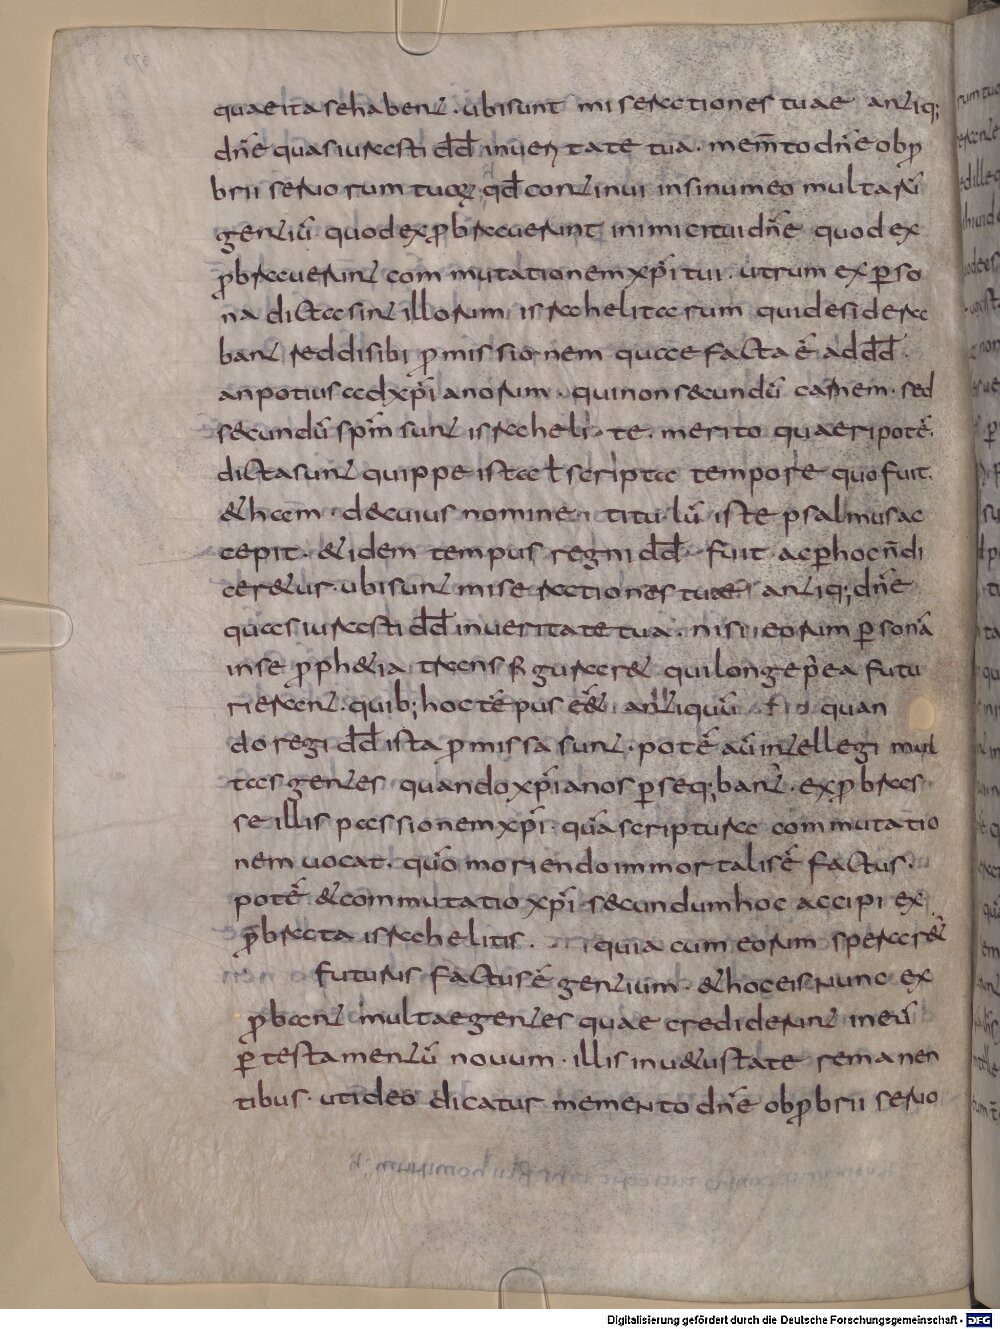 quae ita se habent · ubi sunt miserationes tuae antiq;
dn̄e quas iurasti dd̄ in ueritate tua · mem̄to dn̄e obꝓ
brii seruorum tuoꝝ qd̄ continui in sinu meo multarū
gentiū quod exꝓbrauerunt inimici tui dn̄e quod ex
ꝓbrauerunt commutationem xp̄i tui · utrum ex ꝑso
na dicta sint illorum israhelitarum qui desidera
bant reddi sibi ꝓmissionem quae facta ē ad dd̄ ·
an potius ad xp̄ianorum · qui non secundū carnem · sed
secundū sp̄m sunt israhelitę · merito quaeri potē ·
dicta sunt quippe ista ł scripta tempore quo fuit
&ham · de cuius nomine titulū iste psalmus ac
cepit · & idem tempus regni dd̄ fuit ac ꝑ hoc n̄ di
cer&ur · ubi sunt miserationes tuae antiq; dn̄e
quas iurasti dd̄ in ueritate tua · nisi eorum ꝑsonā
in se ꝓph&ia transfigurar& qui longe p̄ea futu
ri erant · quib; hoc tēpus eē& antiquū quan
do regi dd̄ ista ꝓmissa sunt · potē aū intellegi mul
tas gentes quando xp̄ianos ꝑseq;bant̄ · exꝓbras
se illis passionem xp̄i · quā scriptura commutatio
nem uocat · quō moriendo immortalis ē factus ·
potē & commutatio xp̄i secundum hoc accipi ex
ꝓbrata israhelitis · quia cum eorum sperar&
futurus factus ē gentium · & hoc eis nunc ex
ꝓbant multae gentes quae crediderunt in eū
ꝑ testamentū nouum · illis in u&ustate remanen
tibus · ut ideo dicatur memento dn̄e obꝓbrii seruo
Digitalisierung gefördert durch die Deutsche Forschungsgemeinschaft - DFG